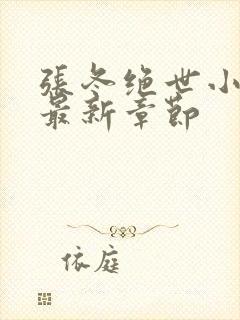 張冬绝世小
最新章節
依庭